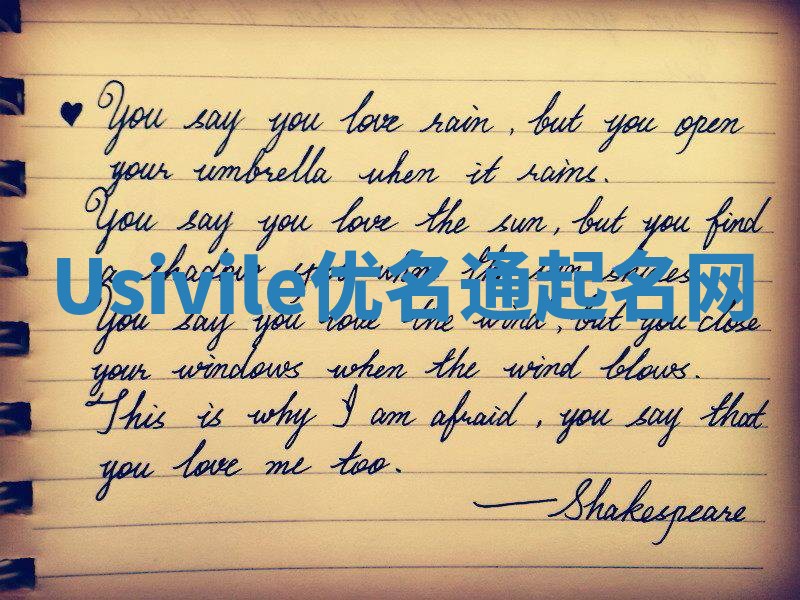 ♥ You say you love rain, but you open
your umbrella when it rains.
You say you love the sun, but you find
a shadow spot when the sun shines.
Usivile优名通起名网
You say you love the wind, but you close
your windows when the wind blows.
This is why I am afraid, you say that
you love me too.
—Shakespeare